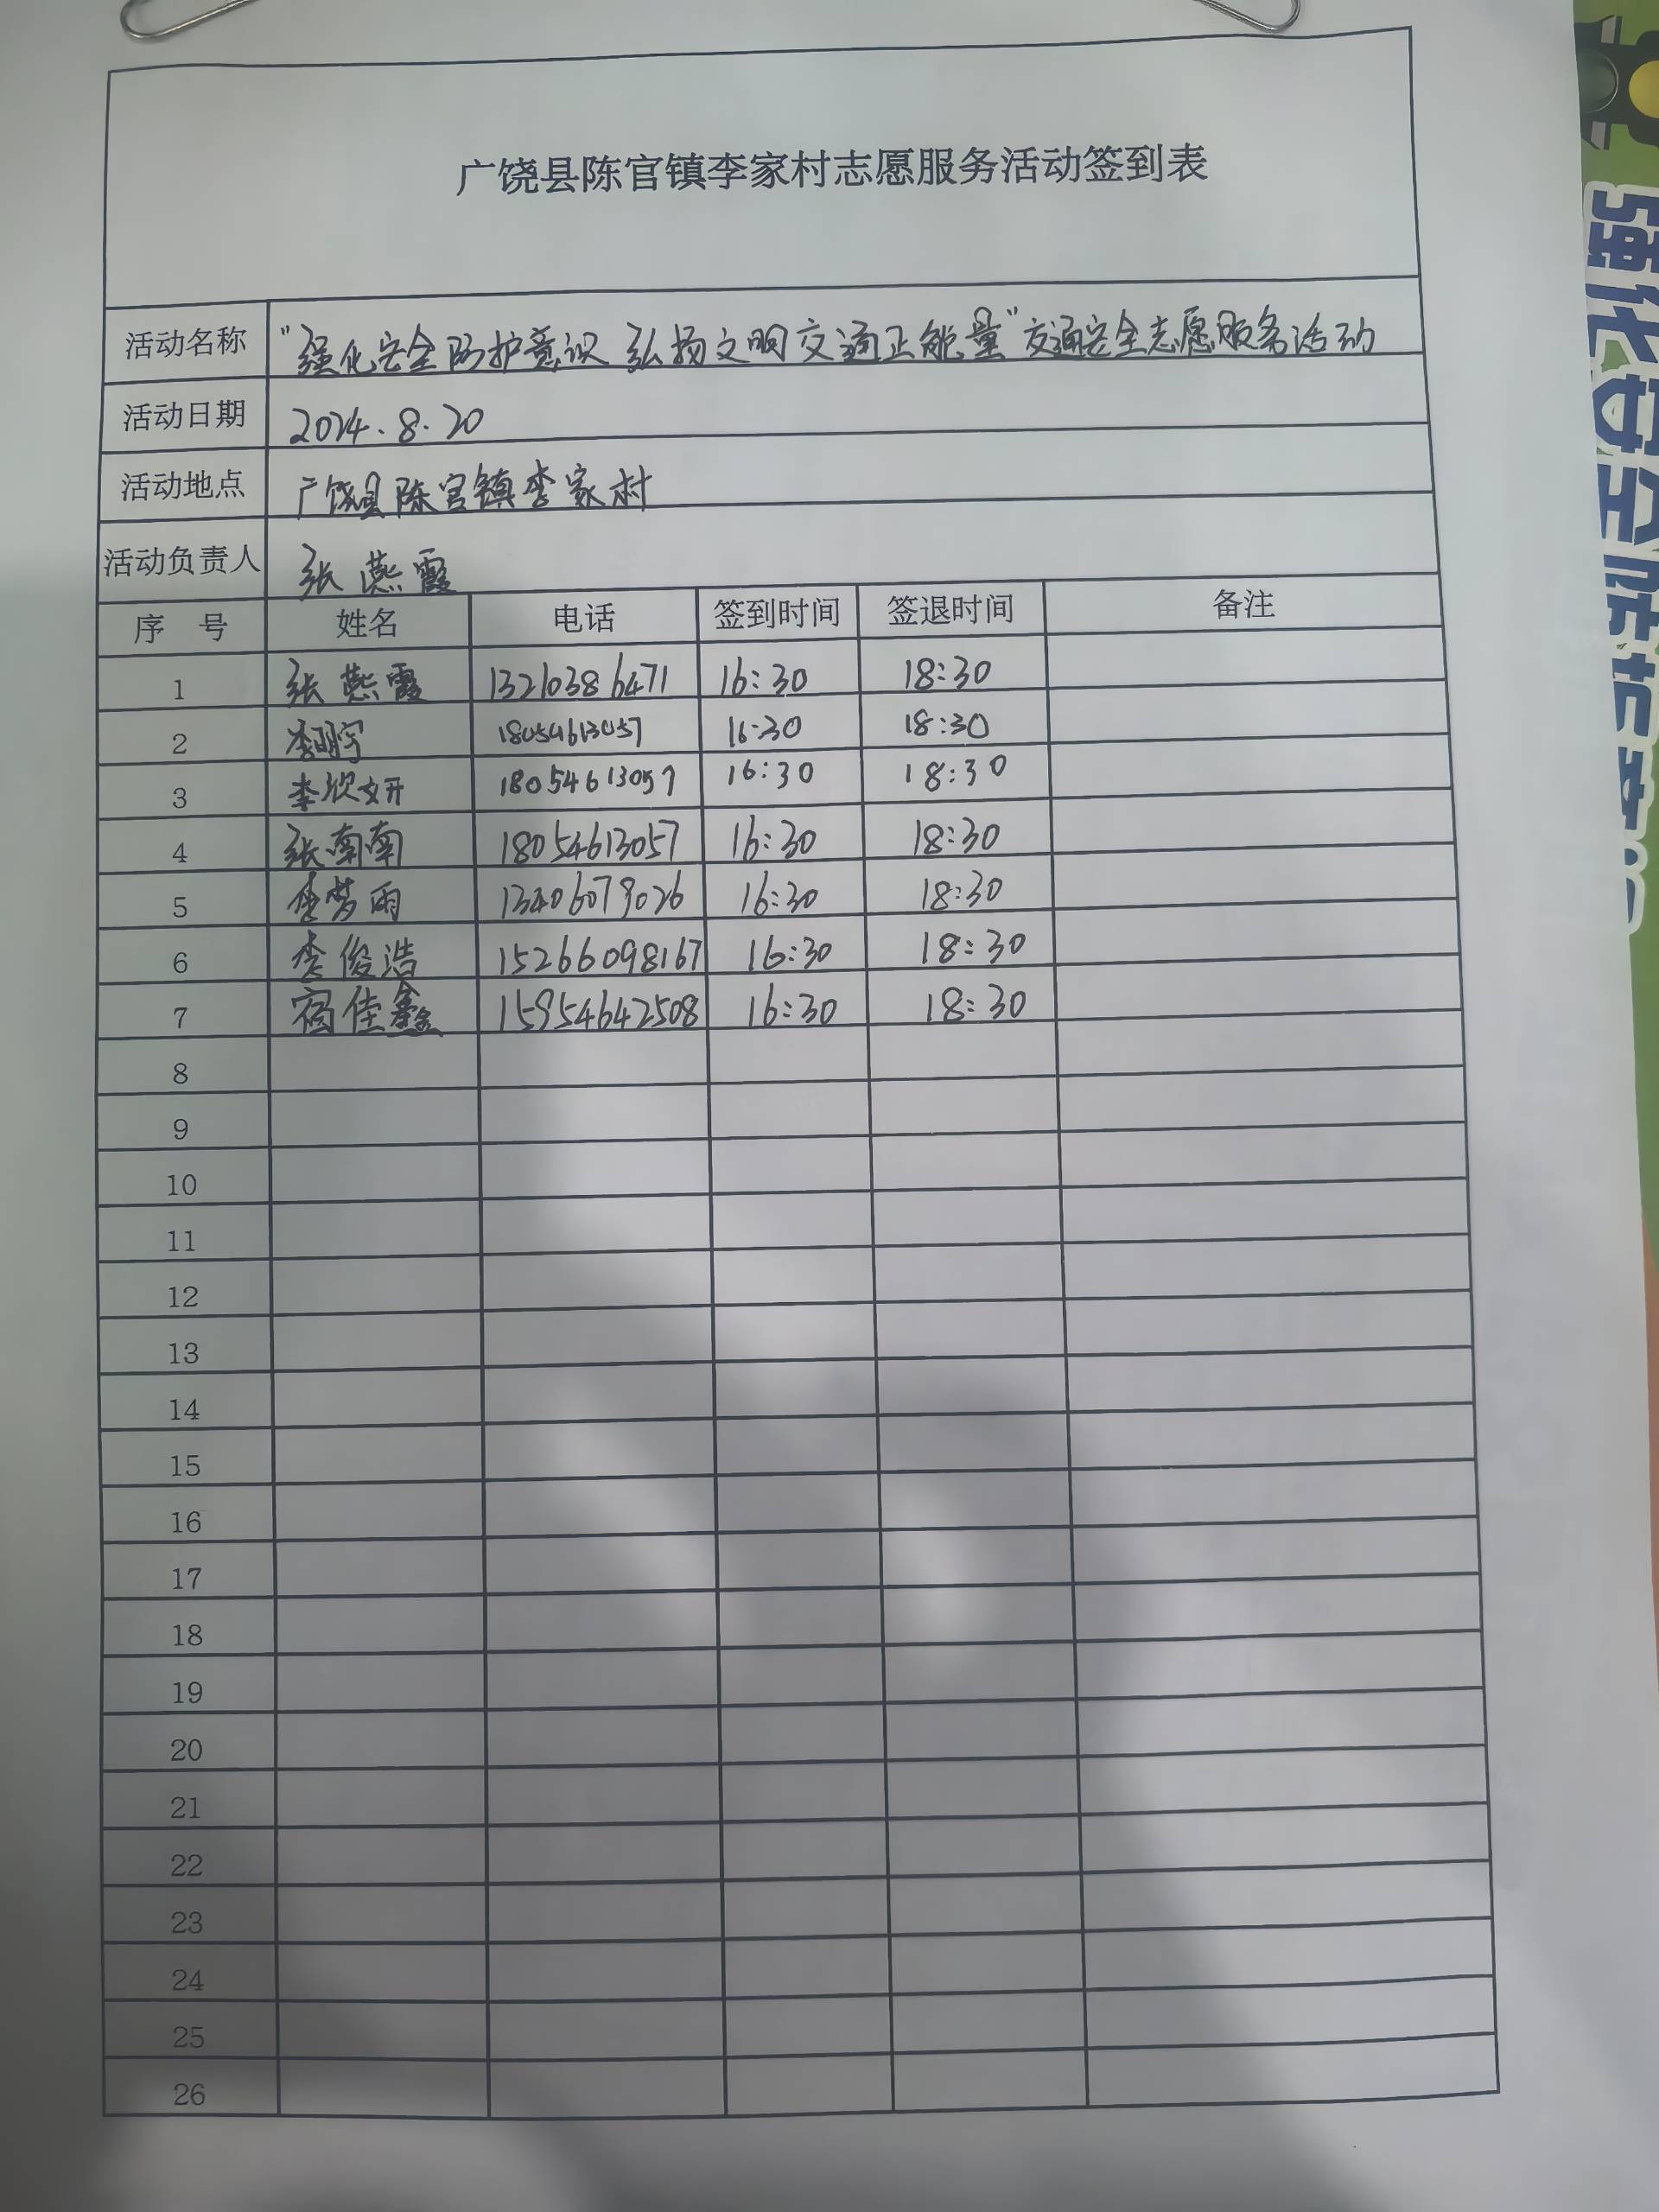 广饶县陈官镇李家村志愿服务活动签到表
活动名称 “强化安全防护意识 弘扬文明交通正能量”交通安全志愿服务活动
活动日期 2024.8.20
活动地点 广饶县陈官镇李家村
活动负责人 张燕霞
序 号 姓名 电话 签到时间 签退时间 备注
1 张燕霞 13210386471 16:30 18:30
2 李明宇 18054613057 16:30 18:30
3 李欣妍 18054613057 16:30 18:30
4 张南南 18054613057 16:30 18:30
5 李梦雨 13406079026 16:30 18:30
6 李俊浩 15266098167 16:30 18:30
7 宿佳鑫 15954642508 16:30 18:30
8
9
10
11
12
13
14
15
16
17
18
19
20
21
22
23
24
25
26
强化安全防护